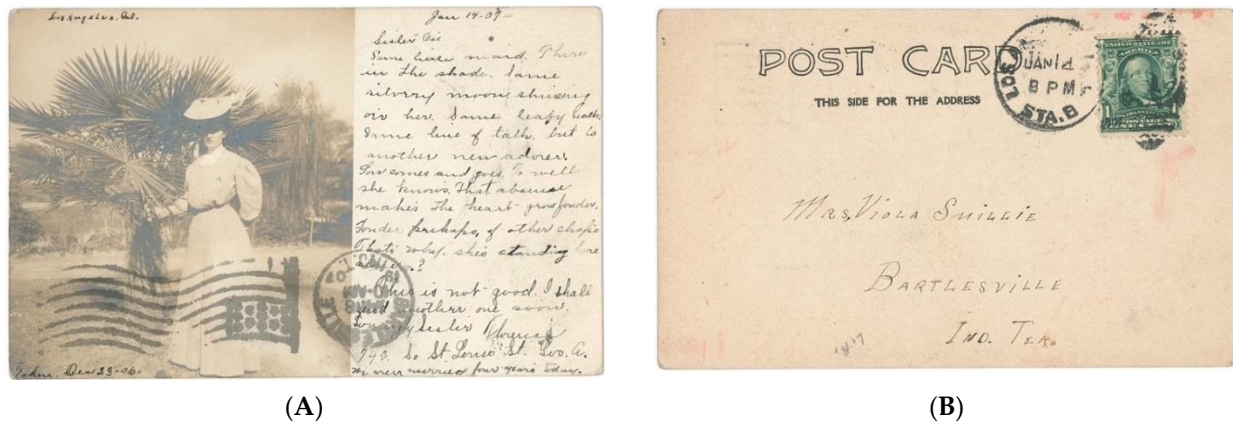 Los Angeles, Cal.
Jan 14-07-
Sister
Same maid. There
in the shade. Same
silvery moon shining
o'er her. Same leafy
Same line of talk, but to
another new adorer.
comes and goes. To well
she knows. That absence
makes the heart grow fonder,
Fonder perhaps, of other chaps
That's why she's standing here
?
This is not good. I shall
send another one soon.
Sister Florence
So St. Louis St. Los. A.
We were married four years today.
Taken, Dec 23-06
(A)
POST CARD
THIS SIDE FOR THE ADDRESS
LOS
JAN 14
8 PM
STA. B
UNITED STATES OF
AMERICA
1 1
POSTAGE
ONE CENT
MRS, VIOLA SMILLIE
BARTLESVILLE
IND. TER
(B)